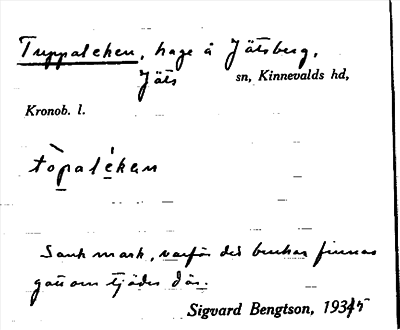 Tuppaleken, hage å Jätsberg,
Jäts sn, Kinnevalds hd,
Kronob. l.
tòpaléken
Sank mark, varför det brukar finnas
gott om tjäder där.
Sigvard Bengtson, 1935